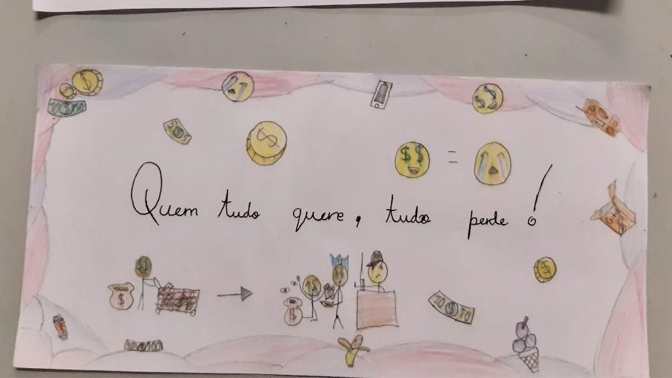 Quem tudo quere, tudo perde!